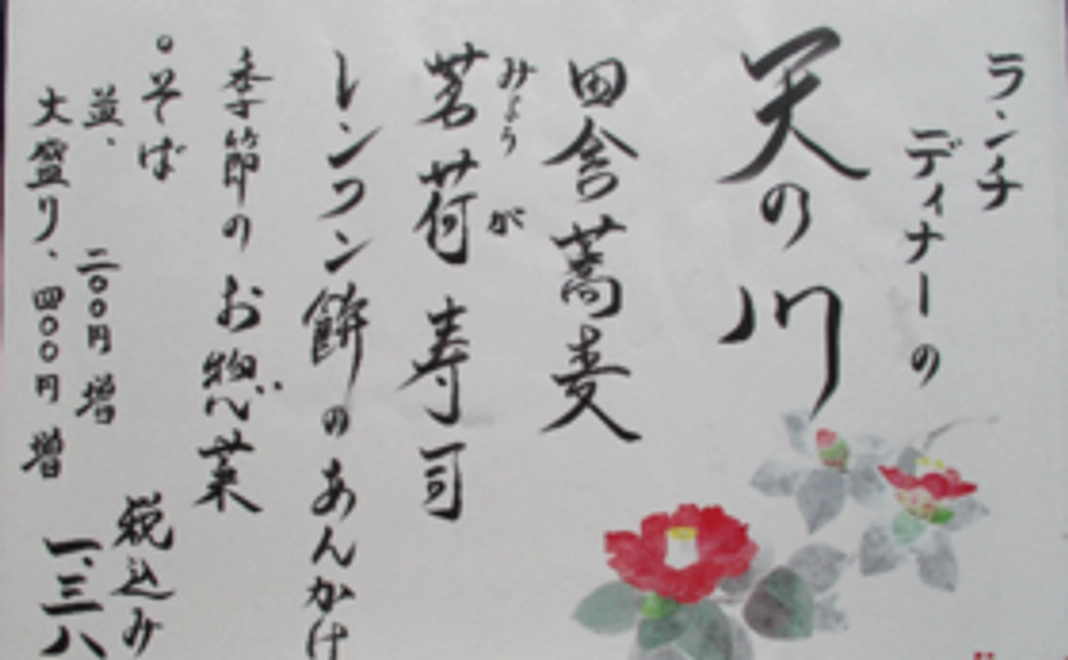 ランチ
ディナーの
天の川
田舎蕎麦
みょうが
茗荷寿司
レンコン餅のあんかけ
季節のお惣菜
。そば
並、二〇〇円増
大盛り、四〇〇円増
税込み
一、三八